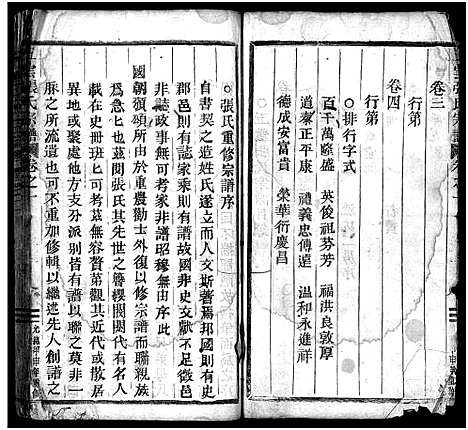 卷三
行第
卷四
行第
○排行字式
百千萬隆盛 英俊祖芬芳 福洪良敦厚
道泰正平康 禮義忠傳遠 溫和永進祥
德成安富貴 榮華衍慶昌
○張氏重修宗譜序
自書契之造姓氏遂立而人文斯著焉邦國則有史
郡邑則有誌家乘則有譜故國非史文獻不足徵邑
非誌事無可考家非譜昭穆無由序此
國朝頒頟所由於重農勸士外復以修宗譜而聯親族
為急也茲閱張氏其先世之簪纓閥閱代有名人
載在史冊班匕可考茲無容贅第觀其近代或散居
異地或聚處他方支分派別皆有譜以聯之莫非一
脉之所流遺也可不重加修輯以繼述先人創譜之
張氏宗譜
卷之一